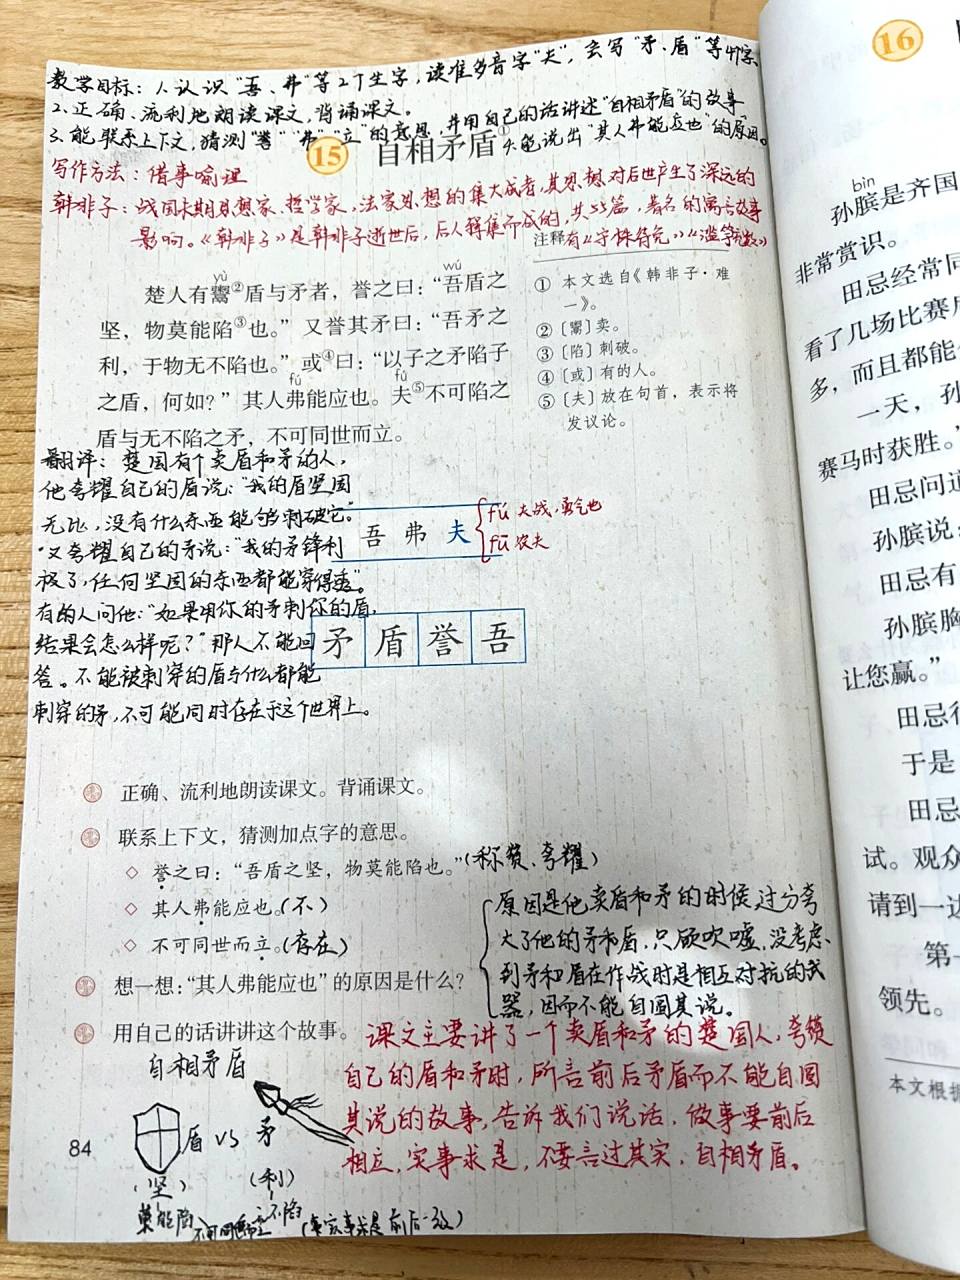 教学目标：1.认识"吾、弗"等2个生字，读准多音字"夫"，会写"矛、盾"等4个字
2.正确、流利地朗读课文，背诵课文。
3.能联系上下文，猜测"誉""弗""立"的意思，并用自己的话讲述"自相矛盾"的故事
15 自相矛盾①
4.能说出"其人弗能应也"的原因。
写作方法：借事喻理
韩非子：战国末期思想家、哲学家，法家思想的集大成者，其思想对后世产生了深远的
影响。《韩非子》是韩非子逝世后，后人辑集而成的，共55篇，著名的寓言故事
有《守株待兔》《滥竽充数》
yù wú
楚人有鬻②盾与矛者，誉之曰："吾盾之
坚，物莫能陷③也。"又誉其矛曰："吾矛之
利，于物无不陷也。"或④曰："以子之矛陷子
fú fú
之盾，何如？"其人弗能应也。夫⑤不可陷之
盾与无不陷之矛，不可同世而立。
注释
① 本文选自《韩非子·难
一》。
② 〔鬻〕卖。
③ 〔陷〕刺破。
④ 〔或〕有的人。
⑤ 〔夫〕放在句首，表示将
发议论。
翻译：楚国有个卖盾和矛的人，
他夸耀自己的盾说："我的盾坚固
无比，没有什么东西能够刺破它。"
又夸耀自己的矛说："我的矛锋利
极了，任何坚固的东西都能穿得透"。
有的人问他："如果用你的矛刺你的盾，
结果会怎么样呢？"那人不能回
答。不能被刺穿的盾与什么都能
刺穿的矛，不可能同时存在于这个世界上。
吾 弗 夫
fú 夫战，勇气也
fū 农夫
矛 盾 誉 吾
正确、流利地朗读课文。背诵课文。
联系上下文，猜测加点字的意思。
◇ 誉之曰："吾盾之坚，物莫能陷也。"(称赞、夸耀)
◇ 其人弗能应也。(不)
◇ 不可同世而立。(存在)
想一想："其人弗能应也"的原因是什么？
原因是他卖盾和矛的时候过分夸
大了他的矛和盾，只顾吹嘘，没考虑
到矛和盾在作战时是相互对抗的武
器，因而不能自圆其说。
用自己的话讲讲这个故事。
课文主要讲了一个卖盾和矛的楚国人，夸赞
自己的盾和矛时，所言前后矛盾而不能自圆
其说的故事，告诉我们说话，做事要前后
相应，实事求是，不要言过其实，自相矛盾。
自相矛盾
盾 VS 矛
(坚) (利)
莫能陷 无不陷
不可同世而立
84
16
bìn
孙膑是齐国
非常赏识。
田忌经常同
看了几场比赛后
多，而且都能
一天，孙
赛马时获胜。"
田忌问道
孙膑说：
田忌有
孙膑胸
让您赢。"
田忌很
于是
田忌
试。观众
请到一边
第一
领先。
本文根据